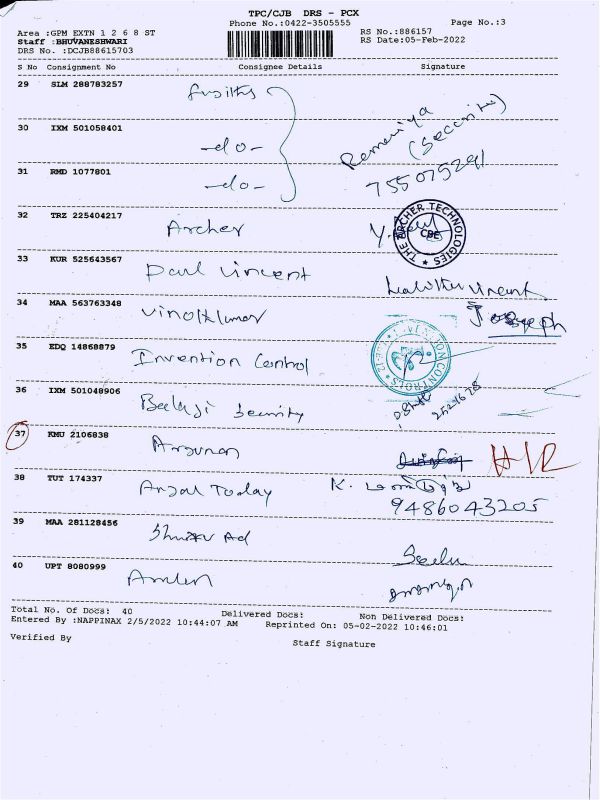 TPC/CJB DRS - PCX
Phone No.:0422-3505555 Page No.:3
Area :GPM EXTN 1 2 6 8 ST RS No.:886157
Staff :BHUVANESHWARI RS Date:05-Feb-2022
DRS No. :DCJB88615703
S No Consignment No Consignee Details Signature
29 SLM 288783257
30 IXM 501058401 -do-
(Security)
31 RMD 1077801 -do-
755075291
32 TRZ 225404217 Archer
THE ARCHER TECHNOLOGIES
CBE
33 KUR 525643567 Paul Vincent Vincent
34 MAA 563763348 Vinothkumar Joseph
35 EDQ 14868879 Invention Control
INVENTION CONTROLS
36 IXM 501048906 Balaji Security
37 KMU 2106838 Arjunan
38 TUT 174337 Anjal Today K.
9486043205
39 MAA 281128456 Ad
40 UPT 8080999
Total No. Of Docs: 40 Delivered Docs: Non Delivered Docs:
Entered By :NAPPINAX 2/5/2022 10:44:07 AM Reprinted On: 05-02-2022 10:46:01
Verified By Staff Signature